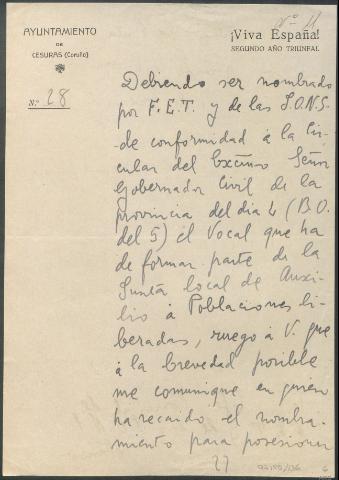 Nº 11
AYUNTAMIENTO
DE
CESURAS (Coruña)
¡Viva España!
SEGUNDO AÑO TRIUNFAL
N.º 28
Debiendo ser nombrado
por F.E.T. y de las J.O.N.S.
de conformidad á la Cir-
cular del Excmo Señor
Gobernador Civil de la
provincia del dia 4 (B.O.
del 5) el Vocal que ha
de formar parte de la
Junta local de Auxi-
lio á Poblaciones li-
beradas, ruego á V. que
á la brevedad posible
me comunique en quien
ha recaido el nombra-
miento para posesionar